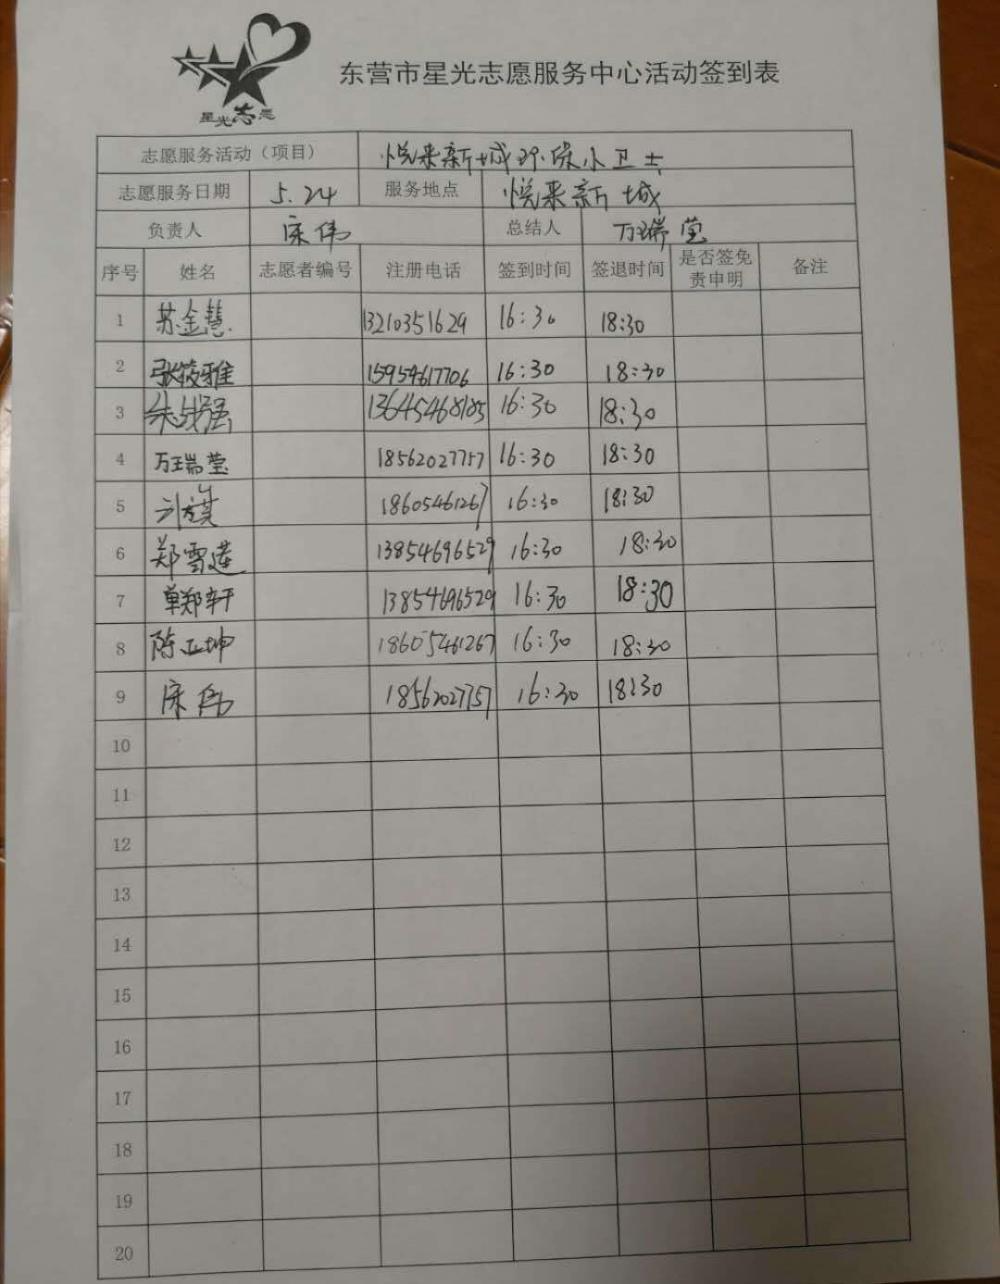 星光志愿
东营市星光志愿服务中心活动签到表
志愿服务活动（项目） 悦来新城环保小卫士
志愿服务日期 5.24 服务地点 悦来新城
负责人 宋伟 总结人 万瑞莹
序号 姓名 志愿者编号 注册电话 签到时间 签退时间 是否签免责申明 备注
1 苏金慧 13210351629 16:30 18:30
2 张筱雅 15954617706 16:30 18:30
3 13645468185 16:30 18:30
4 万瑞莹 18562027757 16:30 18:30
5 刘旗 18605461267 16:30 18:30
6 郑雪莲 13854696529 16:30 18:30
7 单郑轩 13854696529 16:30 18:30
8 陈正坤 18605461267 16:30 18:30
9 宋伟 18562027757 16:30 18:30
10
11
12
13
14
15
16
17
18
19
20